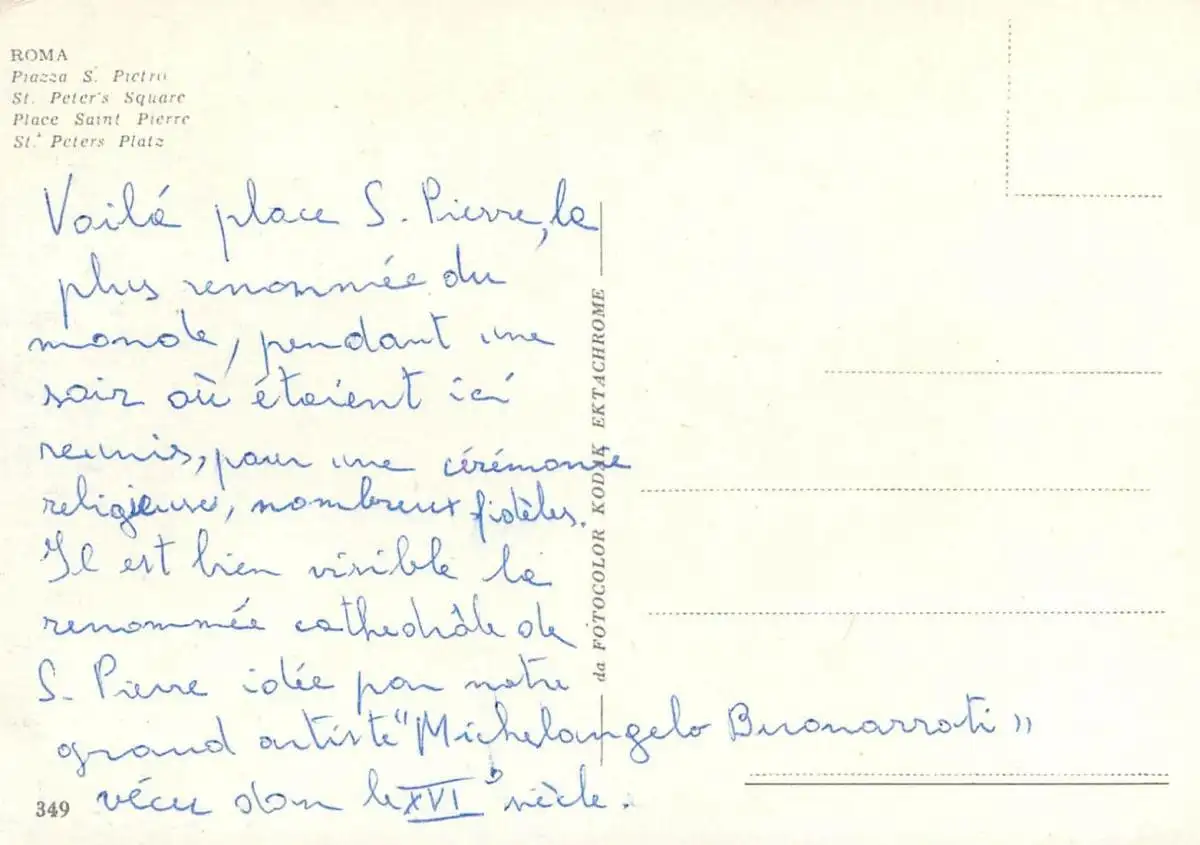 ROMA
Piazza S. Pietro
St. Peter's Square
Place Saint Pierre
St. Peters Platz
Voilá place S. Pierre, la
plus renommée du
monde, pendant une
soir où étaient ici
reunis, pour une cérémonie
religieuse, nombreux fidèles.
Il est bien visible la
renommée cathedrâle de
S. Pierre idée par notre
grand artiste "Michelangelo Buonarroti"
vécu dan le XVI siècle.
349
da FOTOCOLOR KODAK EKTACHROME